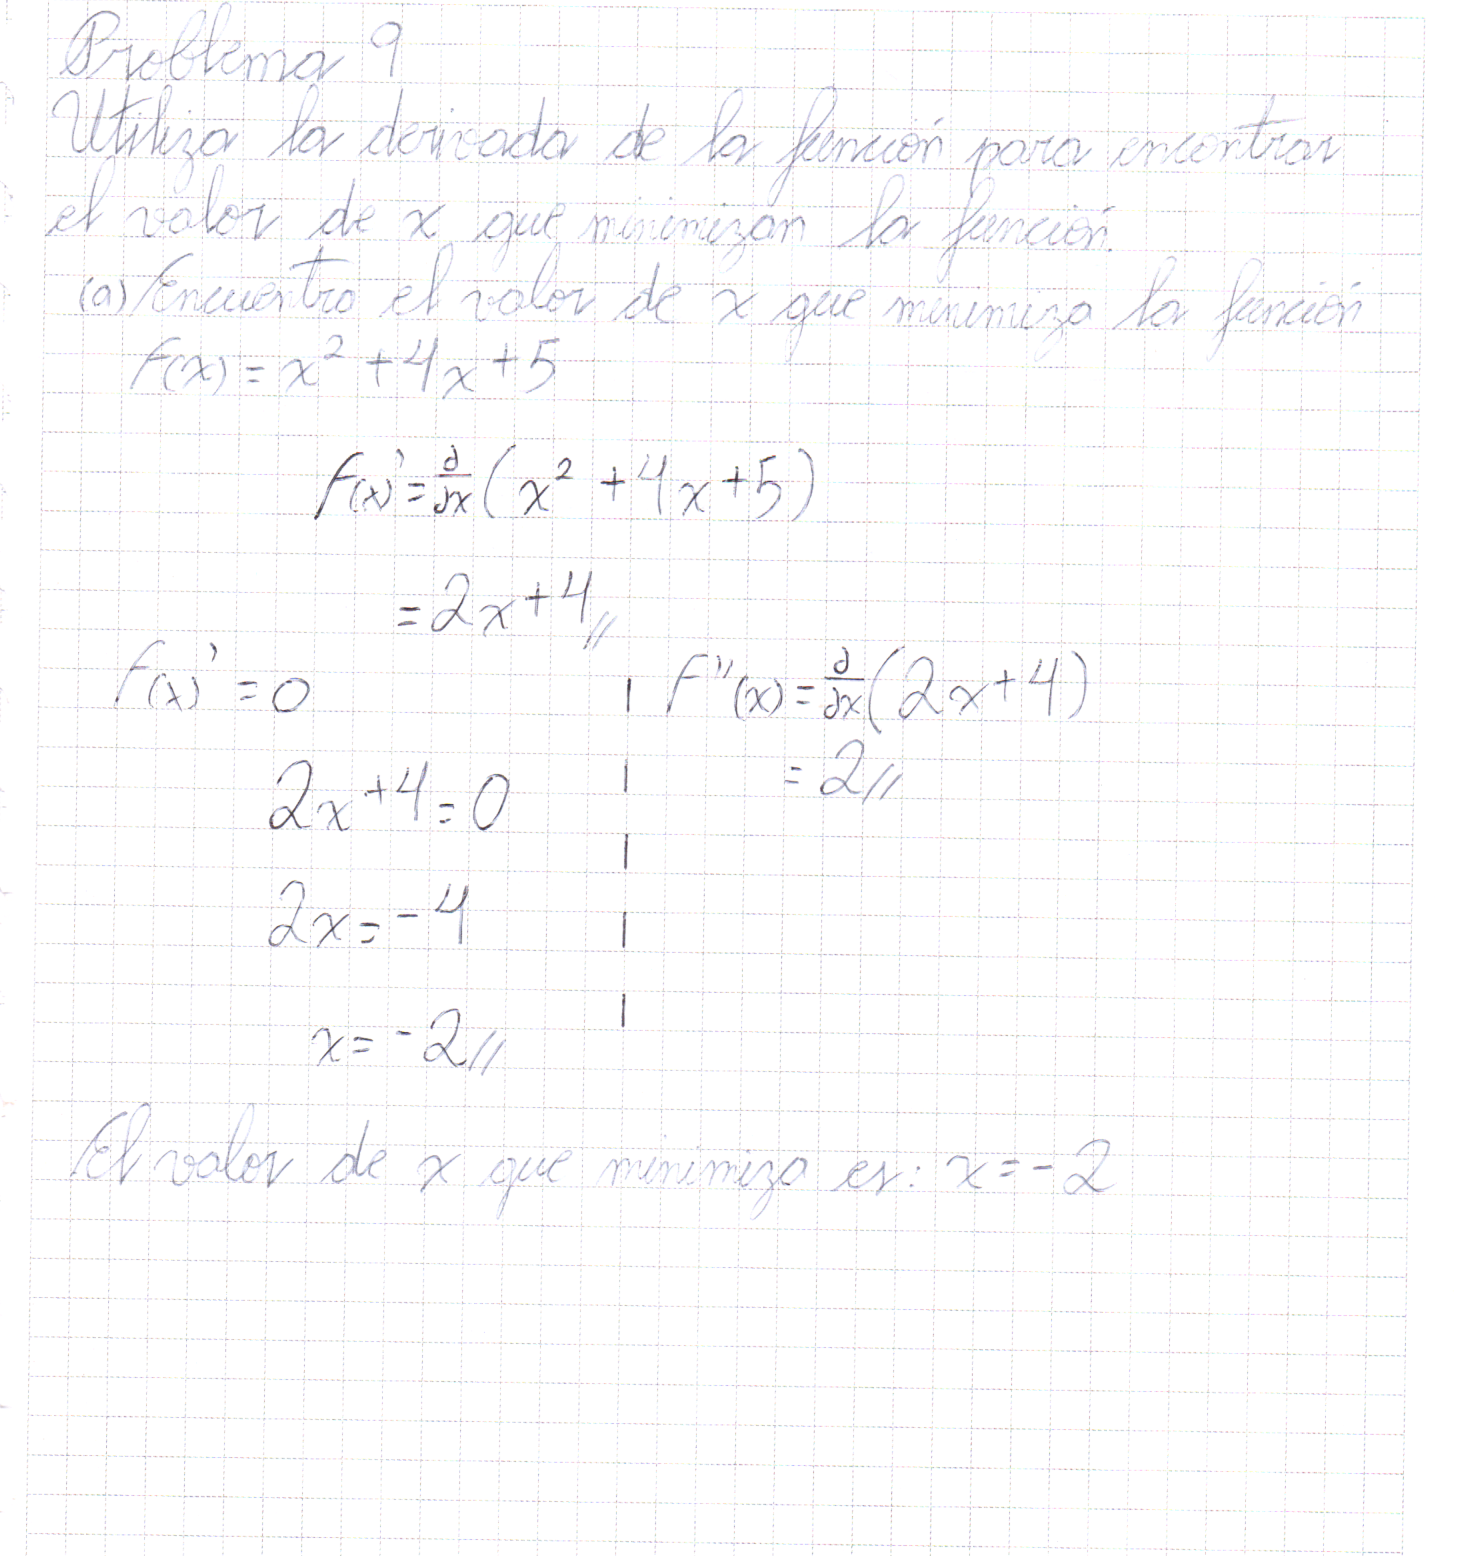 Problema 9
Utiliza la derivada de la función para encontrar
el valor de x que minimizan la función.
(a) Encuentra el valor de x que minimiza la función
F(x) = x² + 4x + 5
F(x)' = d/dx (x² + 4x + 5)
= 2x + 4 //
F(x)' = 0
2x + 4 = 0
2x = -4
x = -2 //
F''(x) = d/dx (2x + 4)
= 2 //
El valor de x que minimiza es: x = -2